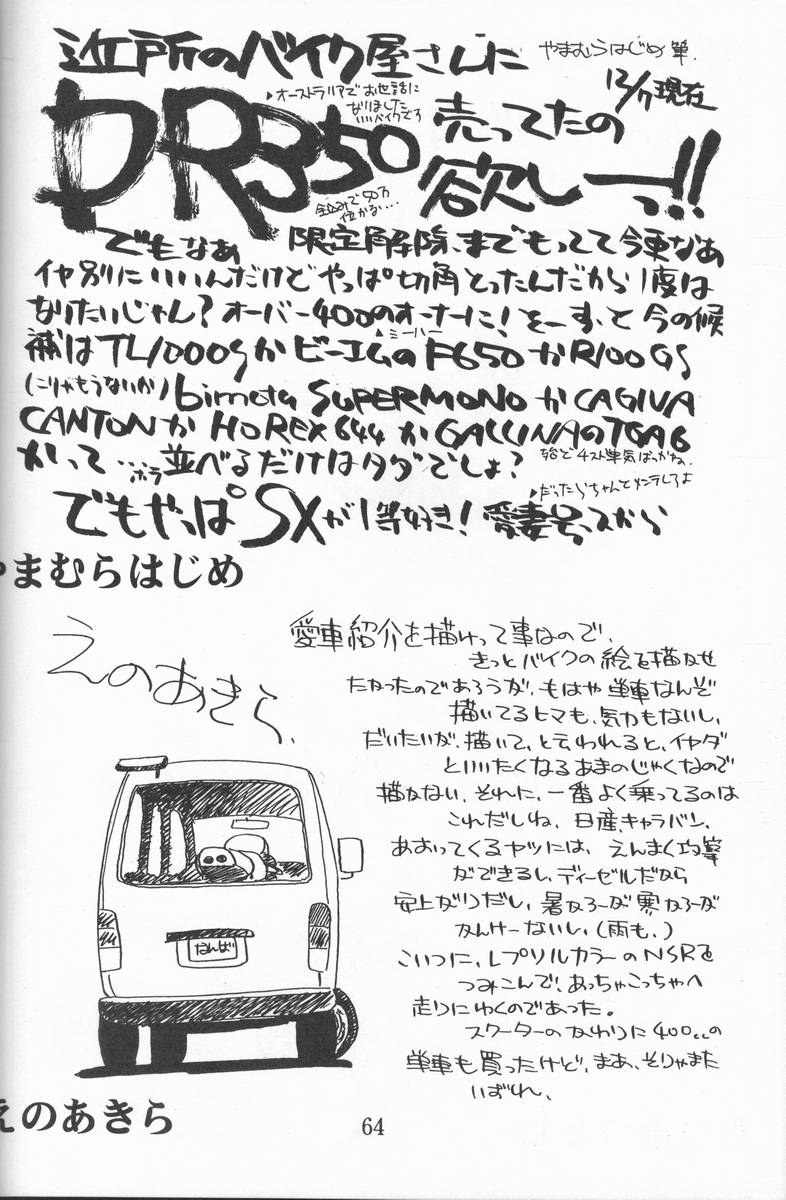 近所のバイク屋さんに
やまむらはじめ 筆.
12/17現在
オーストラリアでお世話に
なりました
いいバイクです
DR350 売ってたの
全込みで50万
位かな…
欲しーっ!!
でもなぁ 限定解除、までもってて今更なあ
イヤ別にいいんだけどやっぱ切角とったんだから1度は
なりたいじゃん?オーバー400のオーナーに!そーすっと今の候
ミーハー
補はTL1000SかビーエムのF650かR100GS
(こりゃもうないか)bimota SUPERMONOかCAGIVA
CANYONかHOREX644かGALLINAのTGA6
かって…ホラ並べるだけはタダでしょ?
だったらちゃんとメンテしろよ
でもやっぱSXが1等好き!愛妻号っスから
やまむらはじめ
えのあきら.
愛車紹介を描けって事なので、
きっとバイクの絵を描かせ
たかったのであろうが、もはや単車なんぞ
描いてるヒマも、気力もないし、
だいたいが、描いて、と云われると、イヤダ
といいたくなるあまのじゃくなので
描かない、それに、一番よく乗ってるのは
これだしね、日産、キャラバン、
あおってくるヤツには、えんまく攻撃
ができるし、ディーゼルだから
安上がりだし、暑かろーが寒かろーが
かんけーないし、(雨も、)
こいつに、レプソルカラーのNSRを
つみこんで、あっちゃこっちゃへ
走りにゆくのであった。
スクーターのかわりに400ccの
単車も買ったけど、まあ、そりゃまた
いずれ、
なんば
えのあきら
64